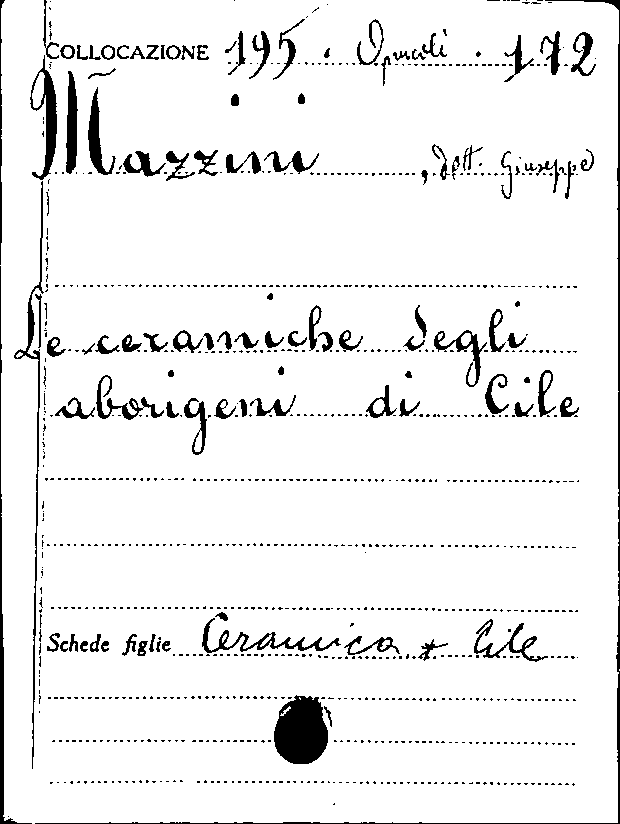 COLLOCAZIONE 195 . Opuscoli . 172
Mazzini , dott. Giuseppe
Le ceramiche degli
aborigeni di Cile
Schede figlie Ceramica + Cile